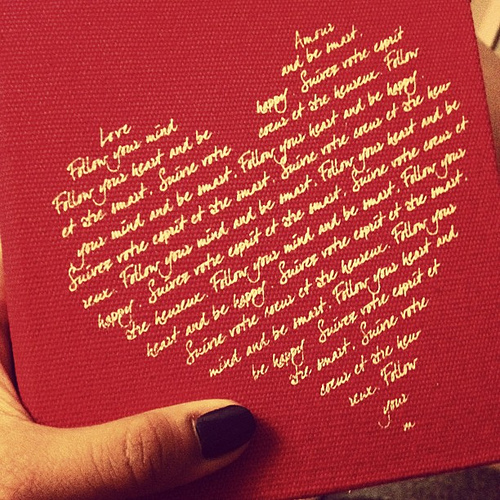 Love Amour
Follow your mind and be smart.
Follow your heart and be happy. Suivez votre esprit
et être smart. Suivre votre coeur et être heureux. Follow
your mind and be smart. Follow your heart and be happy.
Suivez votre esprit et être smart. Suivre votre coeur et être heu
reux. Follow your mind and be smart. Follow your heart and be
happy. Suivez votre esprit et être smart. Suivre votre coeur et
être heureux. Follow your mind and be smart. Follow your
heart and be happy. Suivez votre esprit et être smart.
Suivre votre coeur et être heureux. Follow your
mind and be smart. Follow your heart and
be happy. Suivez votre esprit et
être smart. Suivre votre
coeur et être heu
reux. Follow
your
m